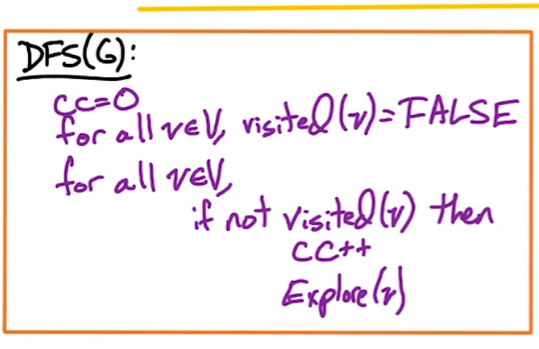 DFS(G):
cc=0
for all v∈V, visited(v)=FALSE
for all v∈V,
if not visited(v) then
cc++
Explore(v)